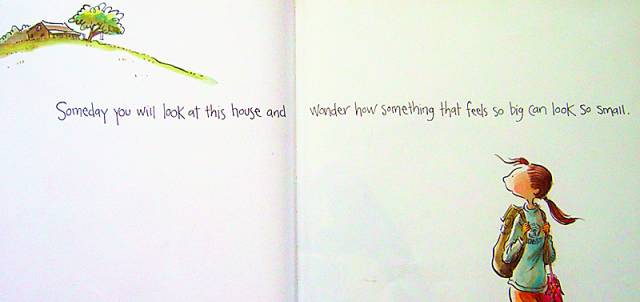 Someday you will look at this house and wonder how something that feels so big can look so small.